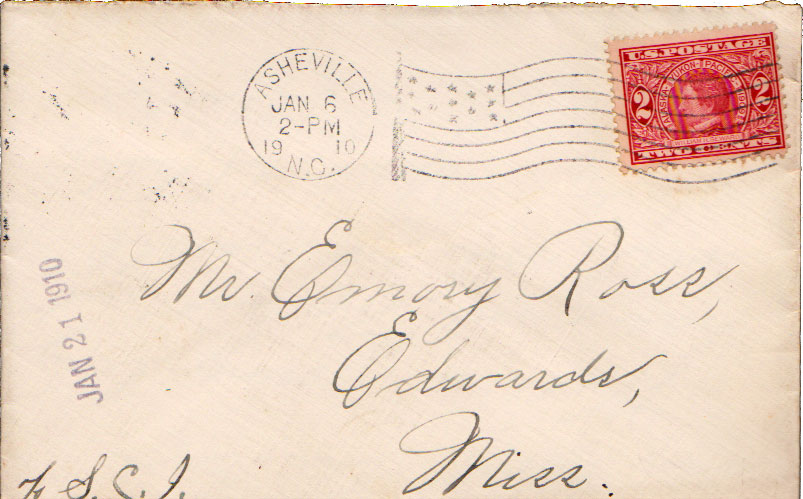 ASHEVILLE
JAN 6
2-PM
19 10
N.C.
U.S. POSTAGE
ALASKA YUKON PACIFIC 1909
2 2
TWO CENTS
Mr. Emory Ross,
Edwards,
Miss.
JAN 21 1910
S. C. I.